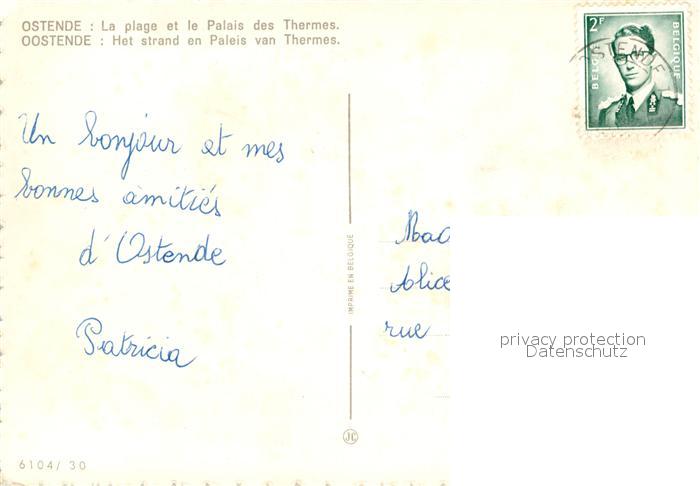 OSTENDE : La plage et le Palais des Thermes.
OOSTENDE : Het strand en Paleis van Thermes.
2F
BELGIE
BELGIQUE
OSTENDE
Un bonjour et mes
bonnes amitiés
d'Ostende
Patricia
IMPRIME EN BELGIQUE
JC
Mad
Alice
rue
privacy protection
Datenschutz
6104/ 30